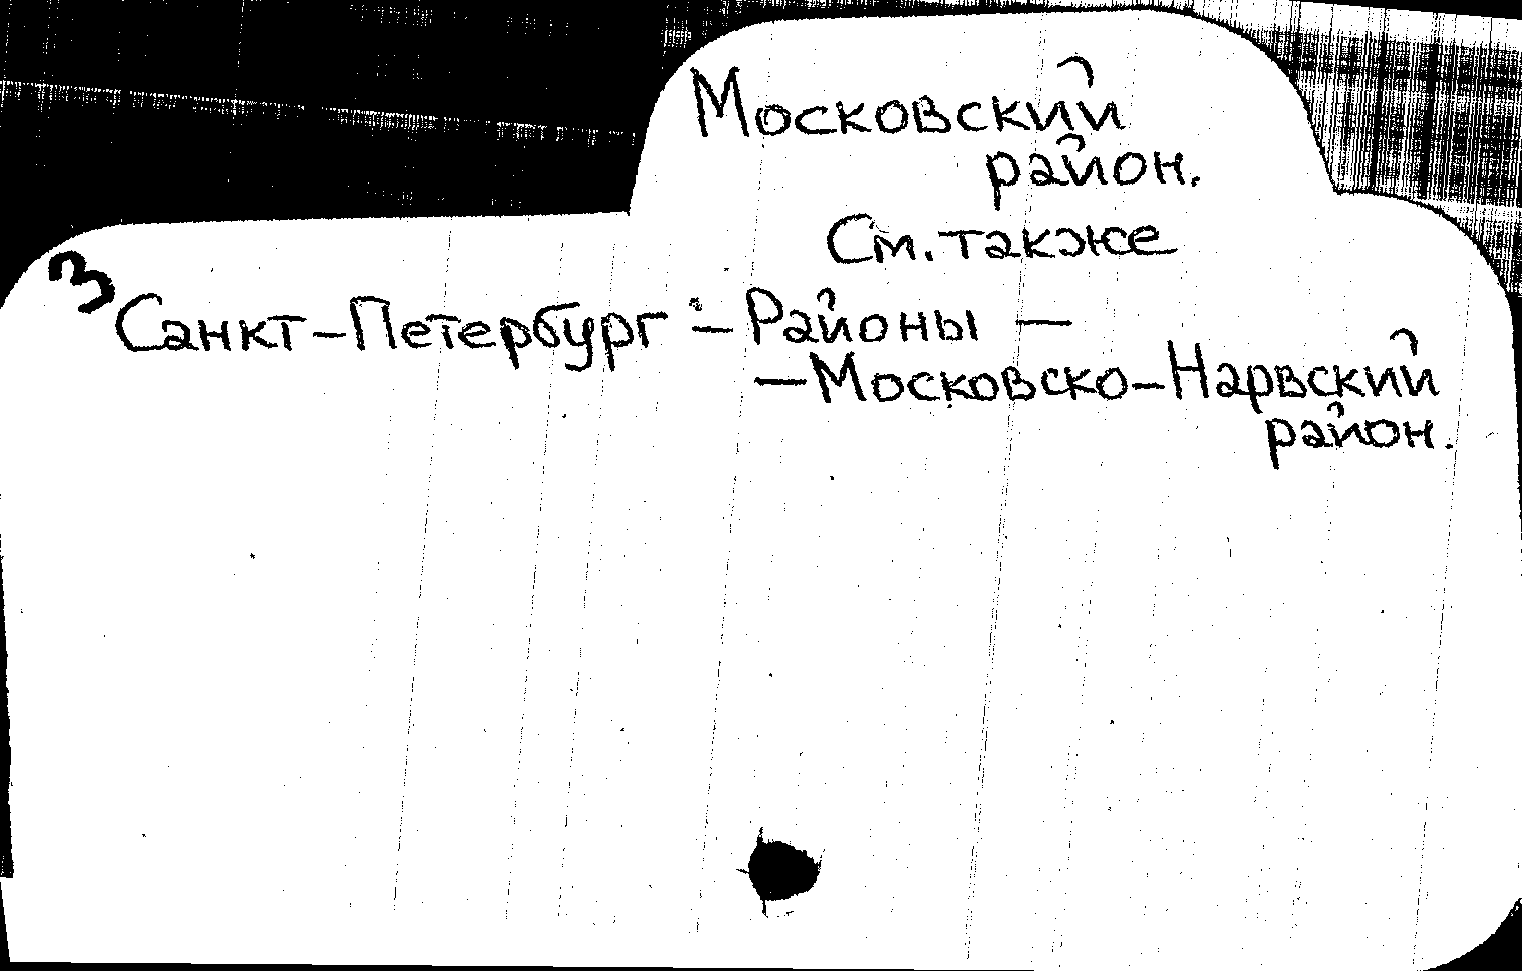 Московский
район.
См. также
3
Санкт-Петербург – Районы –
– Московско-Нарвский
район.